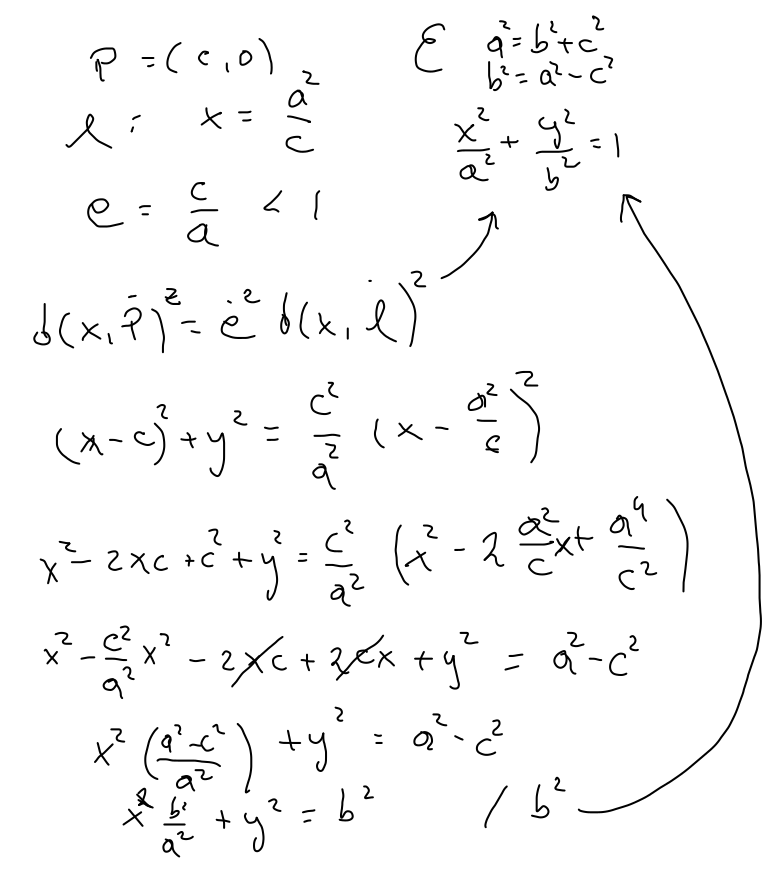 P = (c, 0)
l : x = a²/c
e = c/a < 1
ℰ a² = b² + c²
b² = a² - c²
x²/a² + y²/b² = 1
d(x, P)² = e² d(x, l)²
(x - c)² + y² = c²/a² (x - a²/c)²
x² - 2xc + c² + y² = c²/a² (x² - 2 a²/c x + a⁴/c²)
x² - c²/a² x² - 2xc + 2cx + y² = a² - c²
x² ((a² - c²)/a²) + y² = a² - c²
x² b²/a² + y² = b² / b²